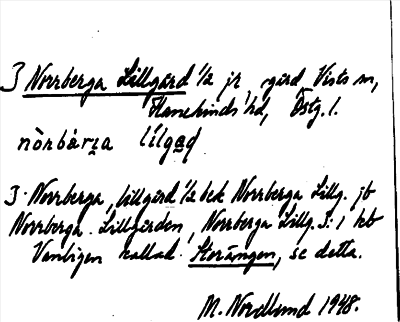 3 Norrberga Lillgård ½ jr, gård, Vists sn,
Hanekinds hd, Östg. l.
nòrbàrɪa lílgaḍ
3. Norrberga, lillgård ½ bek Norrberga Lillg. jb
Norrberga Lillgården, Norrberga Lillg. 3:1 kb
Vanligen kallad Storängen, se detta.
M. Nordlund 1948.